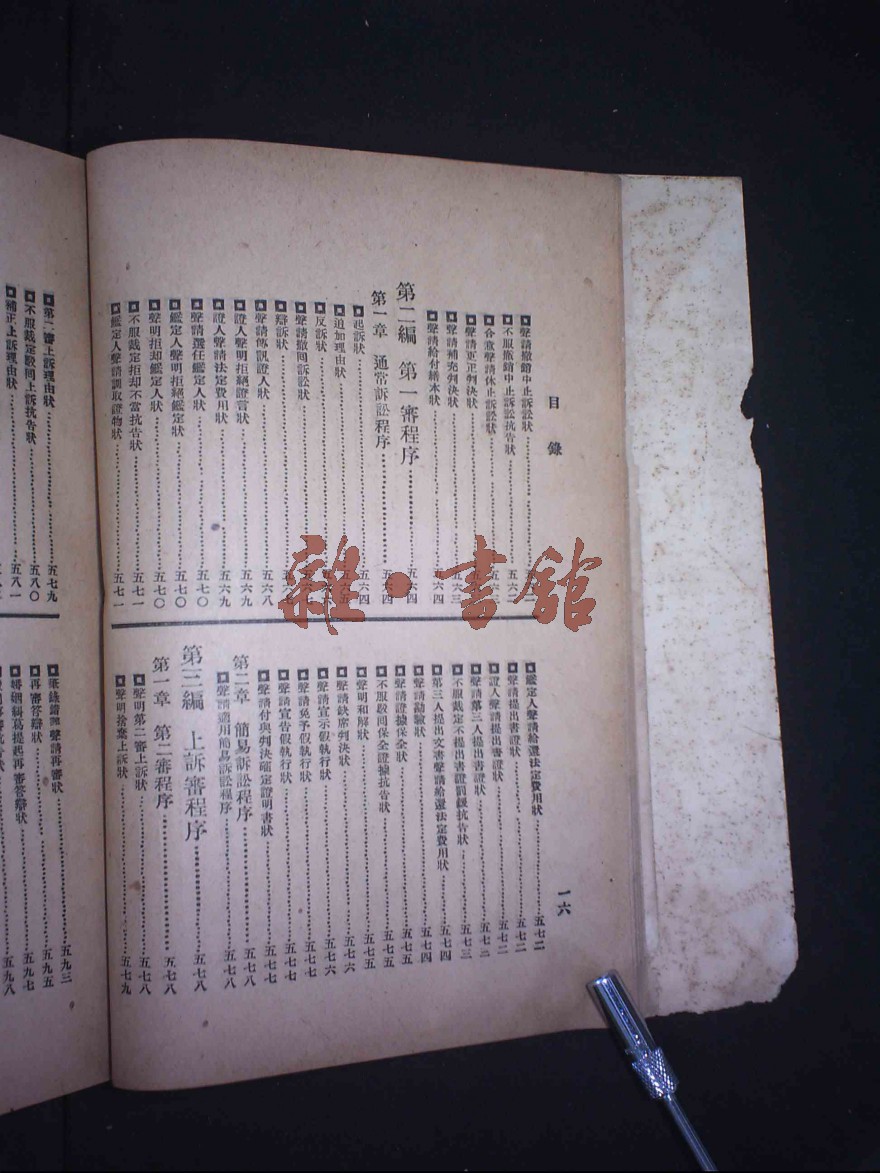 目錄
聲請撤銷中止訴訟狀
不服撤銷中止訴訟抗告狀……五六二
合意聲請休止訴訟狀
聲請更正判決狀
聲請補充判決狀……五六三
聲請給付繕本狀……五六四
第二編 第一審程序……五六四
第一章 通常訴訟程序……五六四
起訴狀……五六四
追加理由狀……五六五
反訴狀
聲請撤回訴訟狀
辯訴狀
聲請傳訊證人狀……五六八
證人聲明拒絕證言狀……五六九
證人聲請法定費用狀……五六九
聲請選任鑑定人狀……五七〇
鑑定人聲明拒絕鑑定狀……五七〇
聲明拒却鑑定人狀……五七〇
不服裁定拒却不當抗告狀……五七一
鑑定人聲請調取證物狀……五七一
一六
鑑定人聲請給還法定費用狀……五七二
聲請提出書證狀……五七二
證人聲請提出書證狀……五七二
聲請第三人提出書證狀……五七二
不服裁定不提出書證罰鍰抗告狀……五七三
第三人提出文書聲請給還法定費用狀……五七四
聲請勘驗狀……五七四
聲請證據保全狀……五七五
不服駁回保全證據抗告狀……五七五
聲明和解狀……五七五
聲請缺席判決狀……五七六
聲請宣示假執行狀……五七六
聲請免予假執行狀……五七七
聲請宣告假執行狀……五七七
聲請付與判決確定證明書狀……五七七
第二章 簡易訴訟程序……五七八
聲請適用簡易訴訟程序……五七八
第三編 上訴審程序……五七八
第一章 第二審程序……五七八
聲明第二審上訴狀……五七八
聲明捨棄上訴狀……五七九
第二審上訴理由狀……五七九
不服裁定駁回上訴抗告狀……五八〇
補正上訴理由狀……五八一
聲請再審狀……五九三
再審答辯狀……五九五
提起再審答辯狀……五九七
五九八
雜·書館